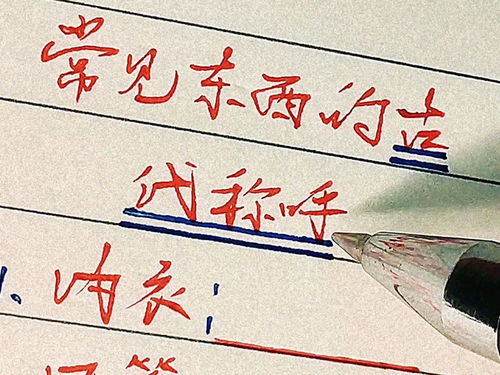 常见东西的古
代称呼
1. 内衣: